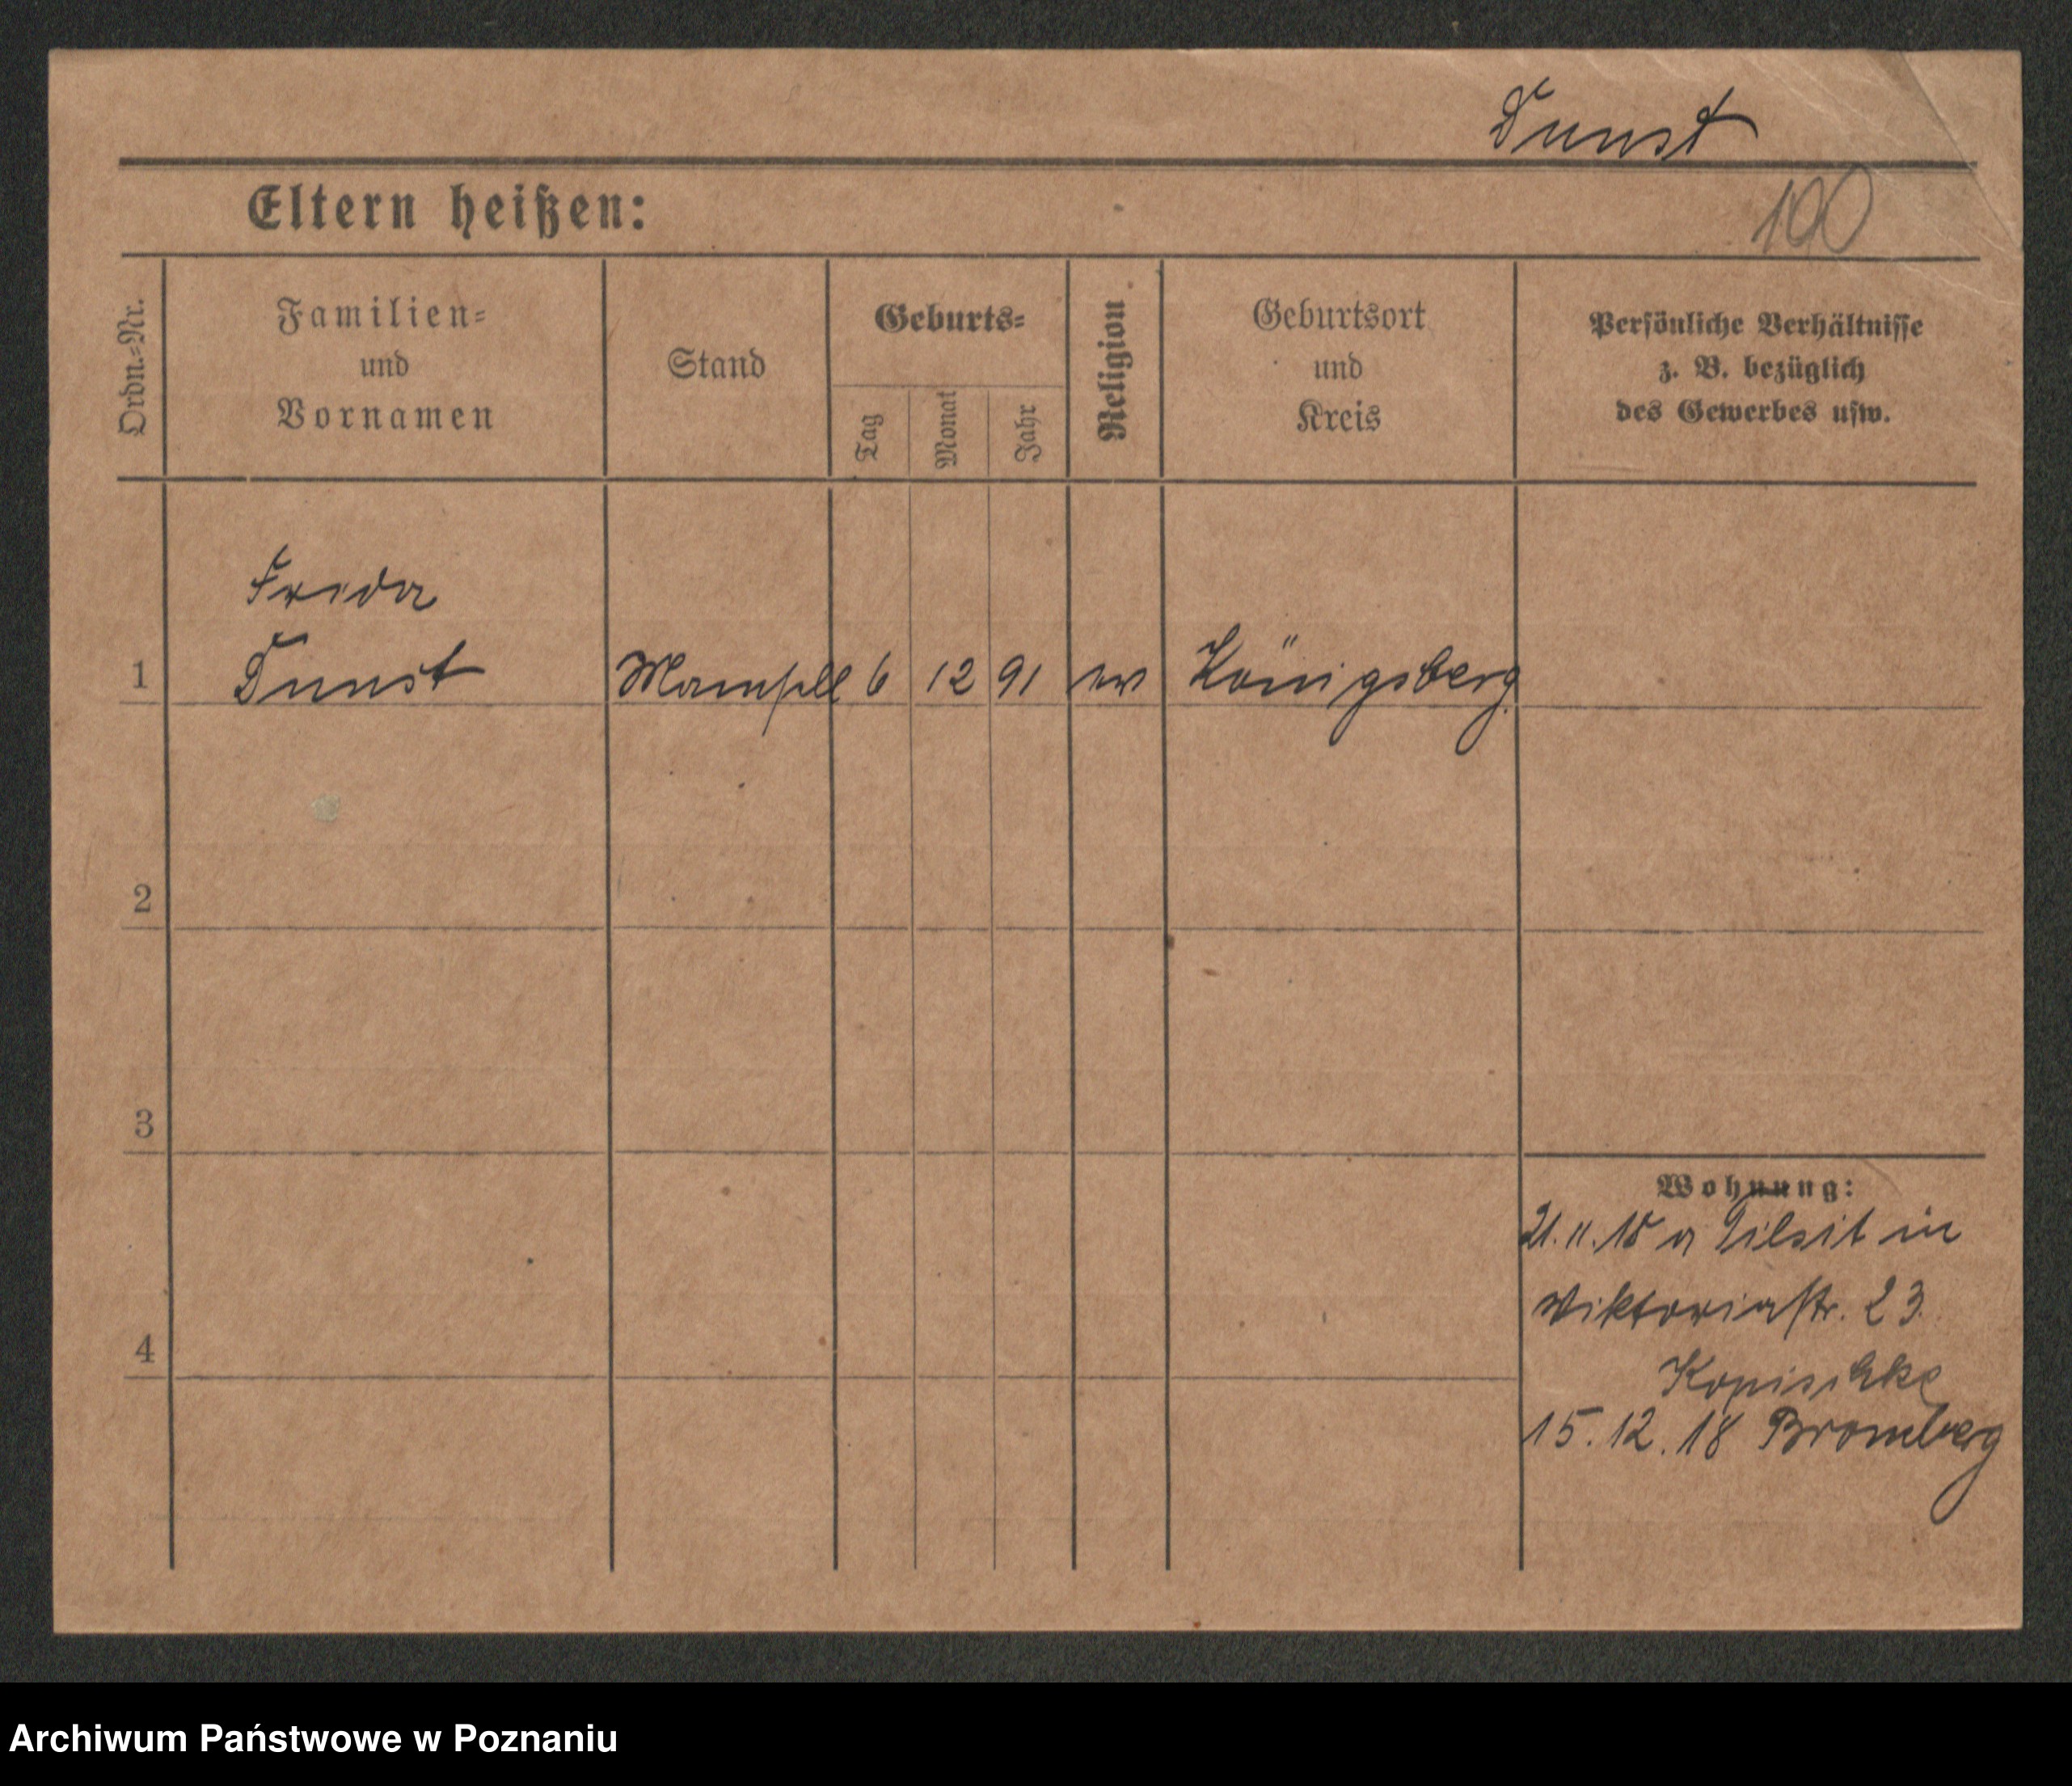 Dunst
100
Eltern heißen:
Ordn.=Nr.
Familien=
und
Vornamen
Stand
Geburts=
Tag
Monat
Jahr
Religion
Geburtsort
und
Kreis
Persönliche Verhältnisse
z. B. bezüglich
des Gewerbes usw.
Frida
1 Dunst Mamsell 6 12 91 ev Königsberg
2
3
4
Wohnung:
21. 11. 18 a Tilsit in
Viktoriastr. 23.
15. 12. 18 Bromberg
Archiwum Państwowe w Poznaniu